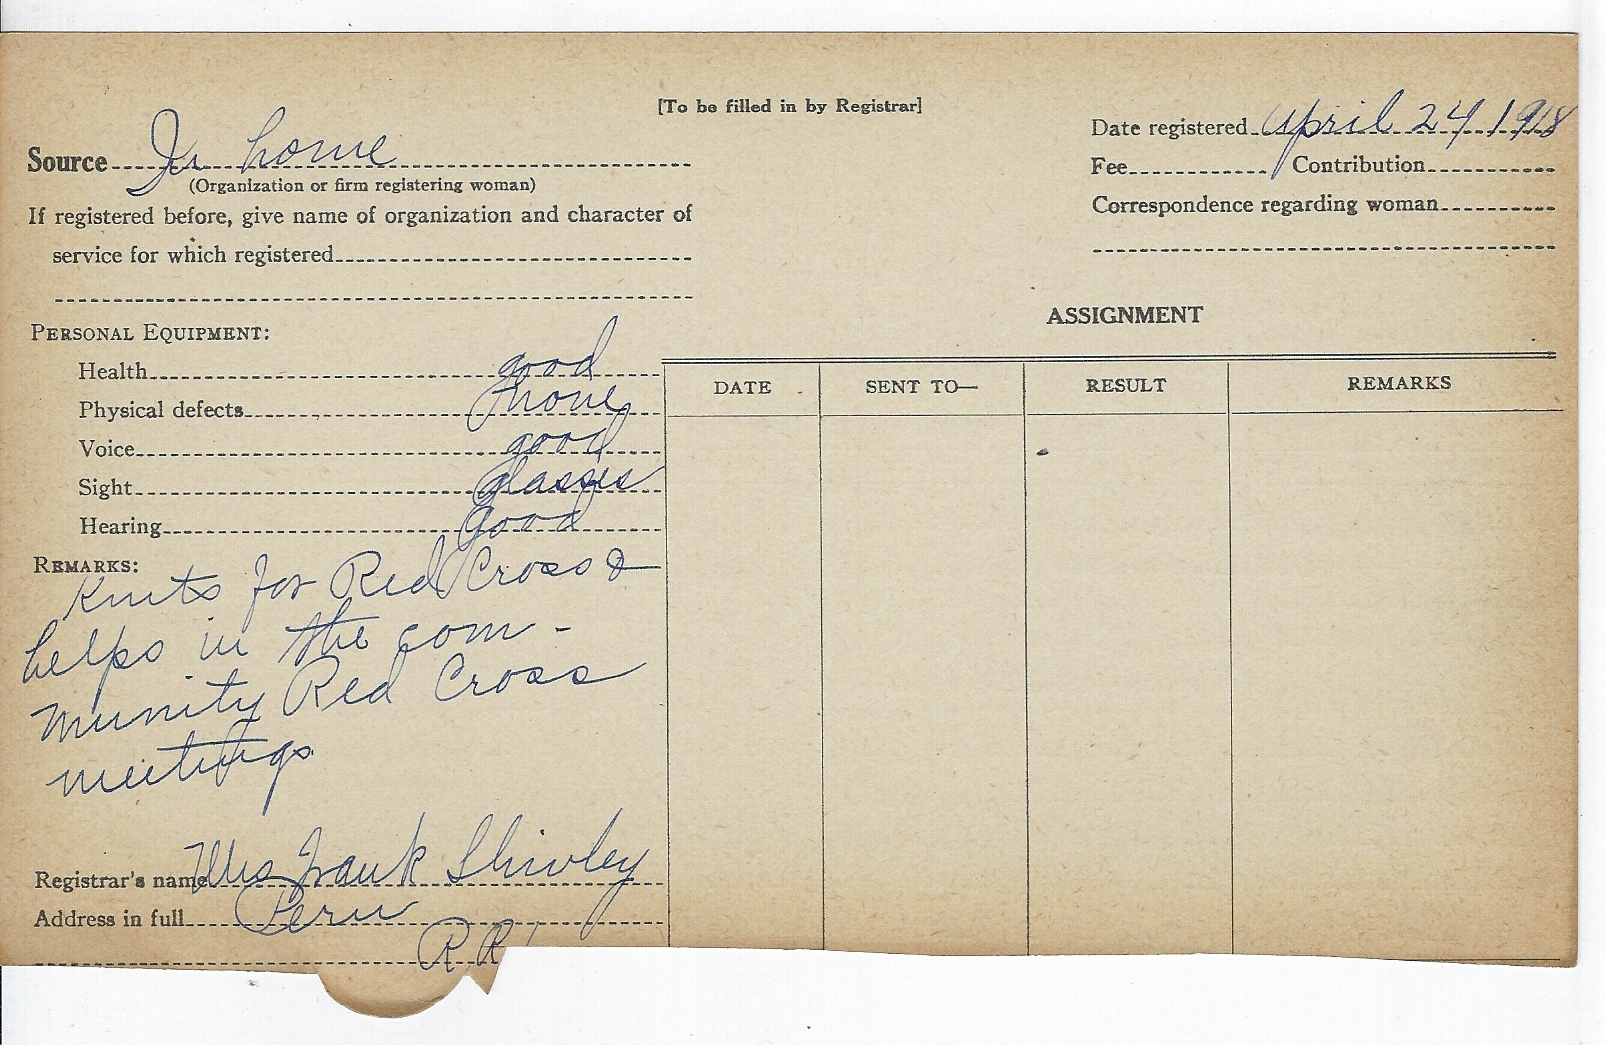 [To be filled in by Registrar]
Date registered April 24 1918
Source In home
(Organization or firm registering woman)
Fee Contribution
If registered before, give name of organization and character of
Correspondence regarding woman
service for which registered
ASSIGNMENT
PERSONAL EQUIPMENT:
Health good
Physical defects none
Voice good
Sight glasses
Hearing good
DATE SENT TO— RESULT REMARKS
REMARKS:
Knits for Red Cross &
helps in the com-
munity Red Cross
meetings
Registrar's name Mrs Frank Shivley
Address in full Peru
R R